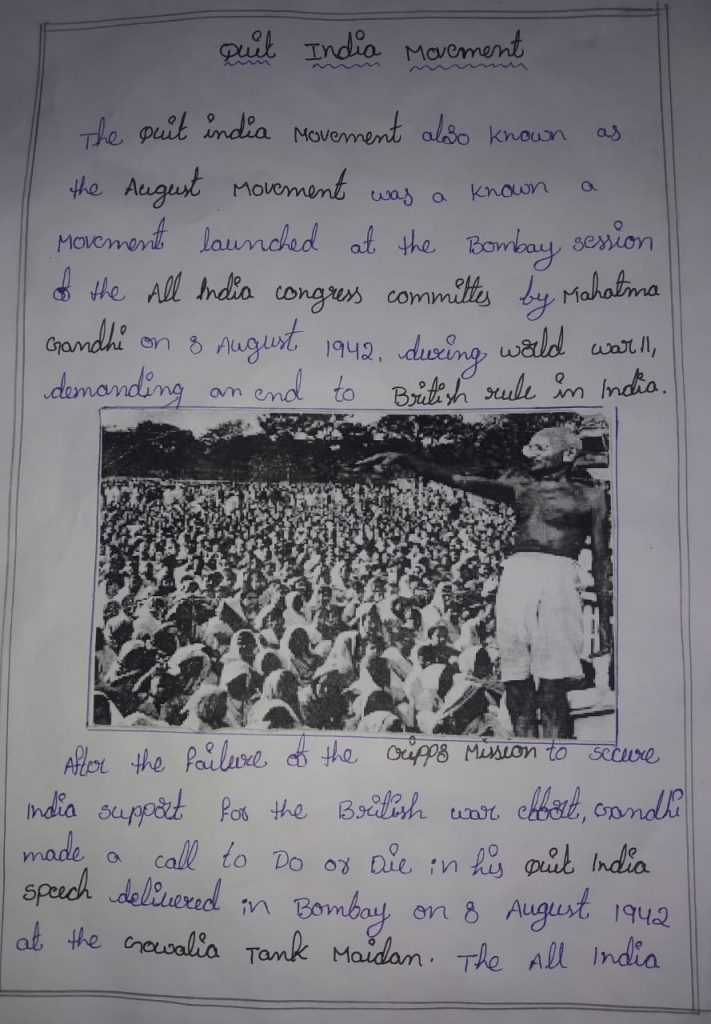 Quit India Movement
The Quit india Movement also known as
the August Movement was a known a
Movement launched at the Bombay session
of the All India congress committes by Mahatma
Gandhi on 8 August 1942, during world war II,
demanding an end to British rule in India.
After the failure of the cripps Mission to secure
India support for the British war effort, Gandhi
made a call to Do or Die in his Quit India
speech delivered in Bombay on 8 August 1942
at the Gowalia Tank Maidan. The All India